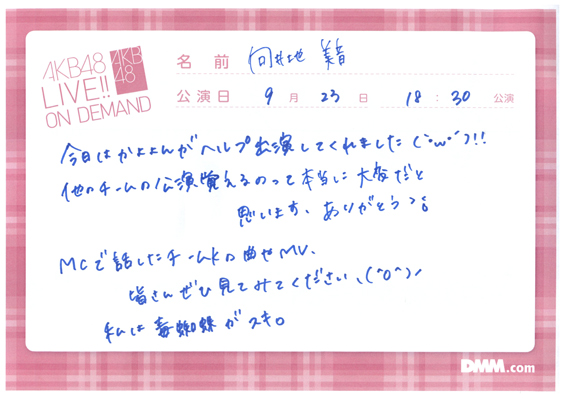 AKB48
LIVE!!
ON DEMAND
AKB
48
名前 向井地 美音
公演日 9月23日 18:30 公演
今日はかよよんがヘルプ出演してくれました(´・ω・`)!!
他のチームの公演覚えるのって本当に大変だと
思います、ありがとう
MCで話したチームKの曲やMV、
皆さんぜひ見てみてください、(^o^)ノ
私は毒蜘蛛がスキ。
DMM.com